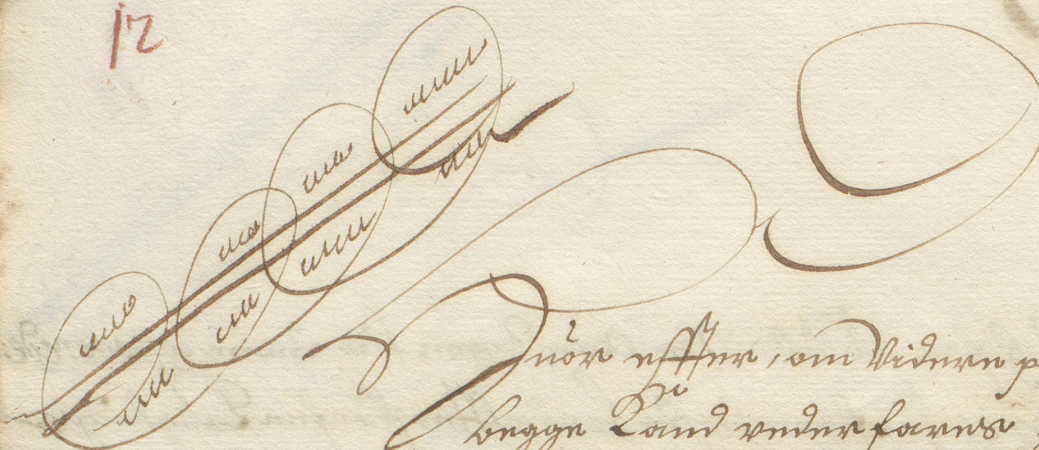 12
Huor effter, om Videre p
begge Land vederfares